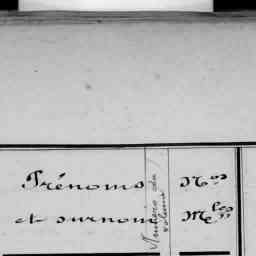 Prénoms
et surnoms
Numéro du
volume
Nos
Mles